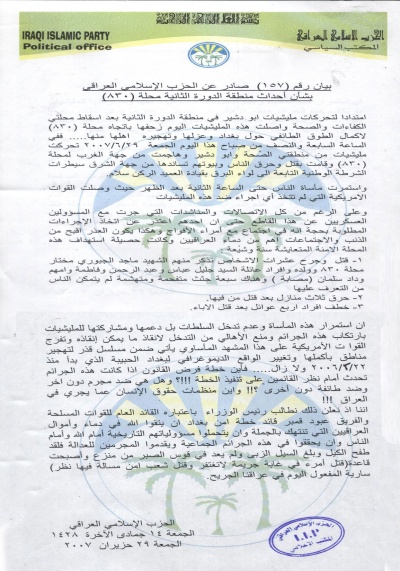 بسم الله الرحمن الرحيم
IRAQI ISLAMIC PARTY
Political office
الحزب الإسلامي العراقي
المكتب السياسي
بيان رقم (١٥٧) صادر عن الحزب الإسلامي العراقي
بشأن أحداث منطقة الدورة الثانية محلة (٨٣٠)
امتدادا لتحركات مليشيات ابو دشير في منطقة الدورة الثانية بعد اسقاط محلتي
الكفاءات والصحة واصلت هذه المليشيات اليوم زحفها باتجاه محلة (٨٣٠)
لاكمال الطوق الطائفي حول بغداد وعزلها وتهجيره اهلها منها..... ففي
الساعة السابعة والنصف من صباح هذا اليوم الجمعة ٢٠٠٧/٦/٢٩ تحركت
مليشيات من منطقتي الصحة وابو دشير وهاجمت من جهة الغرب لمحلة
(٨٣٠) وقامت بقتل وحرق الناس وبيوتهم تساندها من جهة الشرق سيطرات
الشرطة الوطنية التابعة الى لواء البرق بقيادة العميد الركن سلام
واستمرت مأساة الناس حتى الساعة الثانية بعد الظهر حيث وصلت القوات
الامريكية التي لم تتخذ أي اجراء ضد هذه المليشيات
وعلى الرغم من كل الاتصالات والمناشدات التي جرت مع المسؤولين
العسكريين عن هذا القاطع الى ان احدهم اعتذر عن اتخاذ الإجراءات
المطلوبة بحجة انه في اجتماع مع أمراء الافواج وهكذا يكون العذر اقبح من
الذنب والاجتماعات اهم من دماء العراقيين وكانت حصيلة استهداف هذه
المحلة الامنة المتعايشة سنة وشيعة
١- قتل وجرح عشرات الاشخاص نذكر منهم الشهيد ماجد الجبوري مختار
محلة ٨٣٠ وولده وافراد عائلة السيد جليل عباس وعبد الرحمن وفاطمة وامهم
وداد سلمان (مصابة) وهناك سبعة جثث متفحمة ومتهشمة لم يتمكن الناس
من التعرف عليها
٢- حرق ثلاث منازل بعد قتل من فيها.
٣- خطف افراد اربع عوائل بعد قتل الآباء.
ان استمرار هذه المأساة وعدم تدخل السلطات بل دعمها ومشاركتها للمليشيات
بارتكاب هذه الجرائم ومنع الأهالي من التدخل لانقاذ ما يمكن إنقاذه وتفرج
القوات الأمريكية على هذا المشهد المأساوي يأتي ضمن مسلسل قذر لتهجير
مناطق بأكملها وتغيير الواقع الديموغرافي لبغداد الحبيبة الذي بدأ منذ
٢٠٠٦/٢/٢٢ ولا زال..... فأين خطة فرض القانون اذا كانت هذه الجرائم
تحدث أمام نظر القائمين على تنفيذ الخطة !!!؟ وهل هي ضد مجرم دون اخر
وضد طائفة دون أخرى ؟!! وابن منظمات حقوق الإنسان عما يجري في
العراق !!!
اننا اذ نعلن ذلك نطالب رئيس الوزراء باعتباره القائد العام للقوات المسلحة
والفريق عبود قمبر قائد خطة امن بغداد ان يتقوا الله في دماء وأموال
العراقيين التي تنتهك بالجملة وان يتحملوا مسؤولياتهم التاريخية أمام الله وأمام
الناس وان يحققوا في هذه الجرائم الجماعية ويقدموا المجرمين للعدالة فلقد
طفح الكيل وبلغ السيل الزبى ولم يعد في قوس الصبر من منزع وأصبحت
قاعدة(قتل امرء في غابة جريمة لاتغتفر وقتل شعب امن مسألة فيها نظر)
سارية المفعول اليوم في عراقنا الجريح.
الحزب الإسلامي العراقي
الجمعة ١٤ جمادى الآخرة ١٤٢٨
الجمعة ٢٩ حزيران ٢٠٠٧
الحزب الإسلامي العراقي
I.I.P